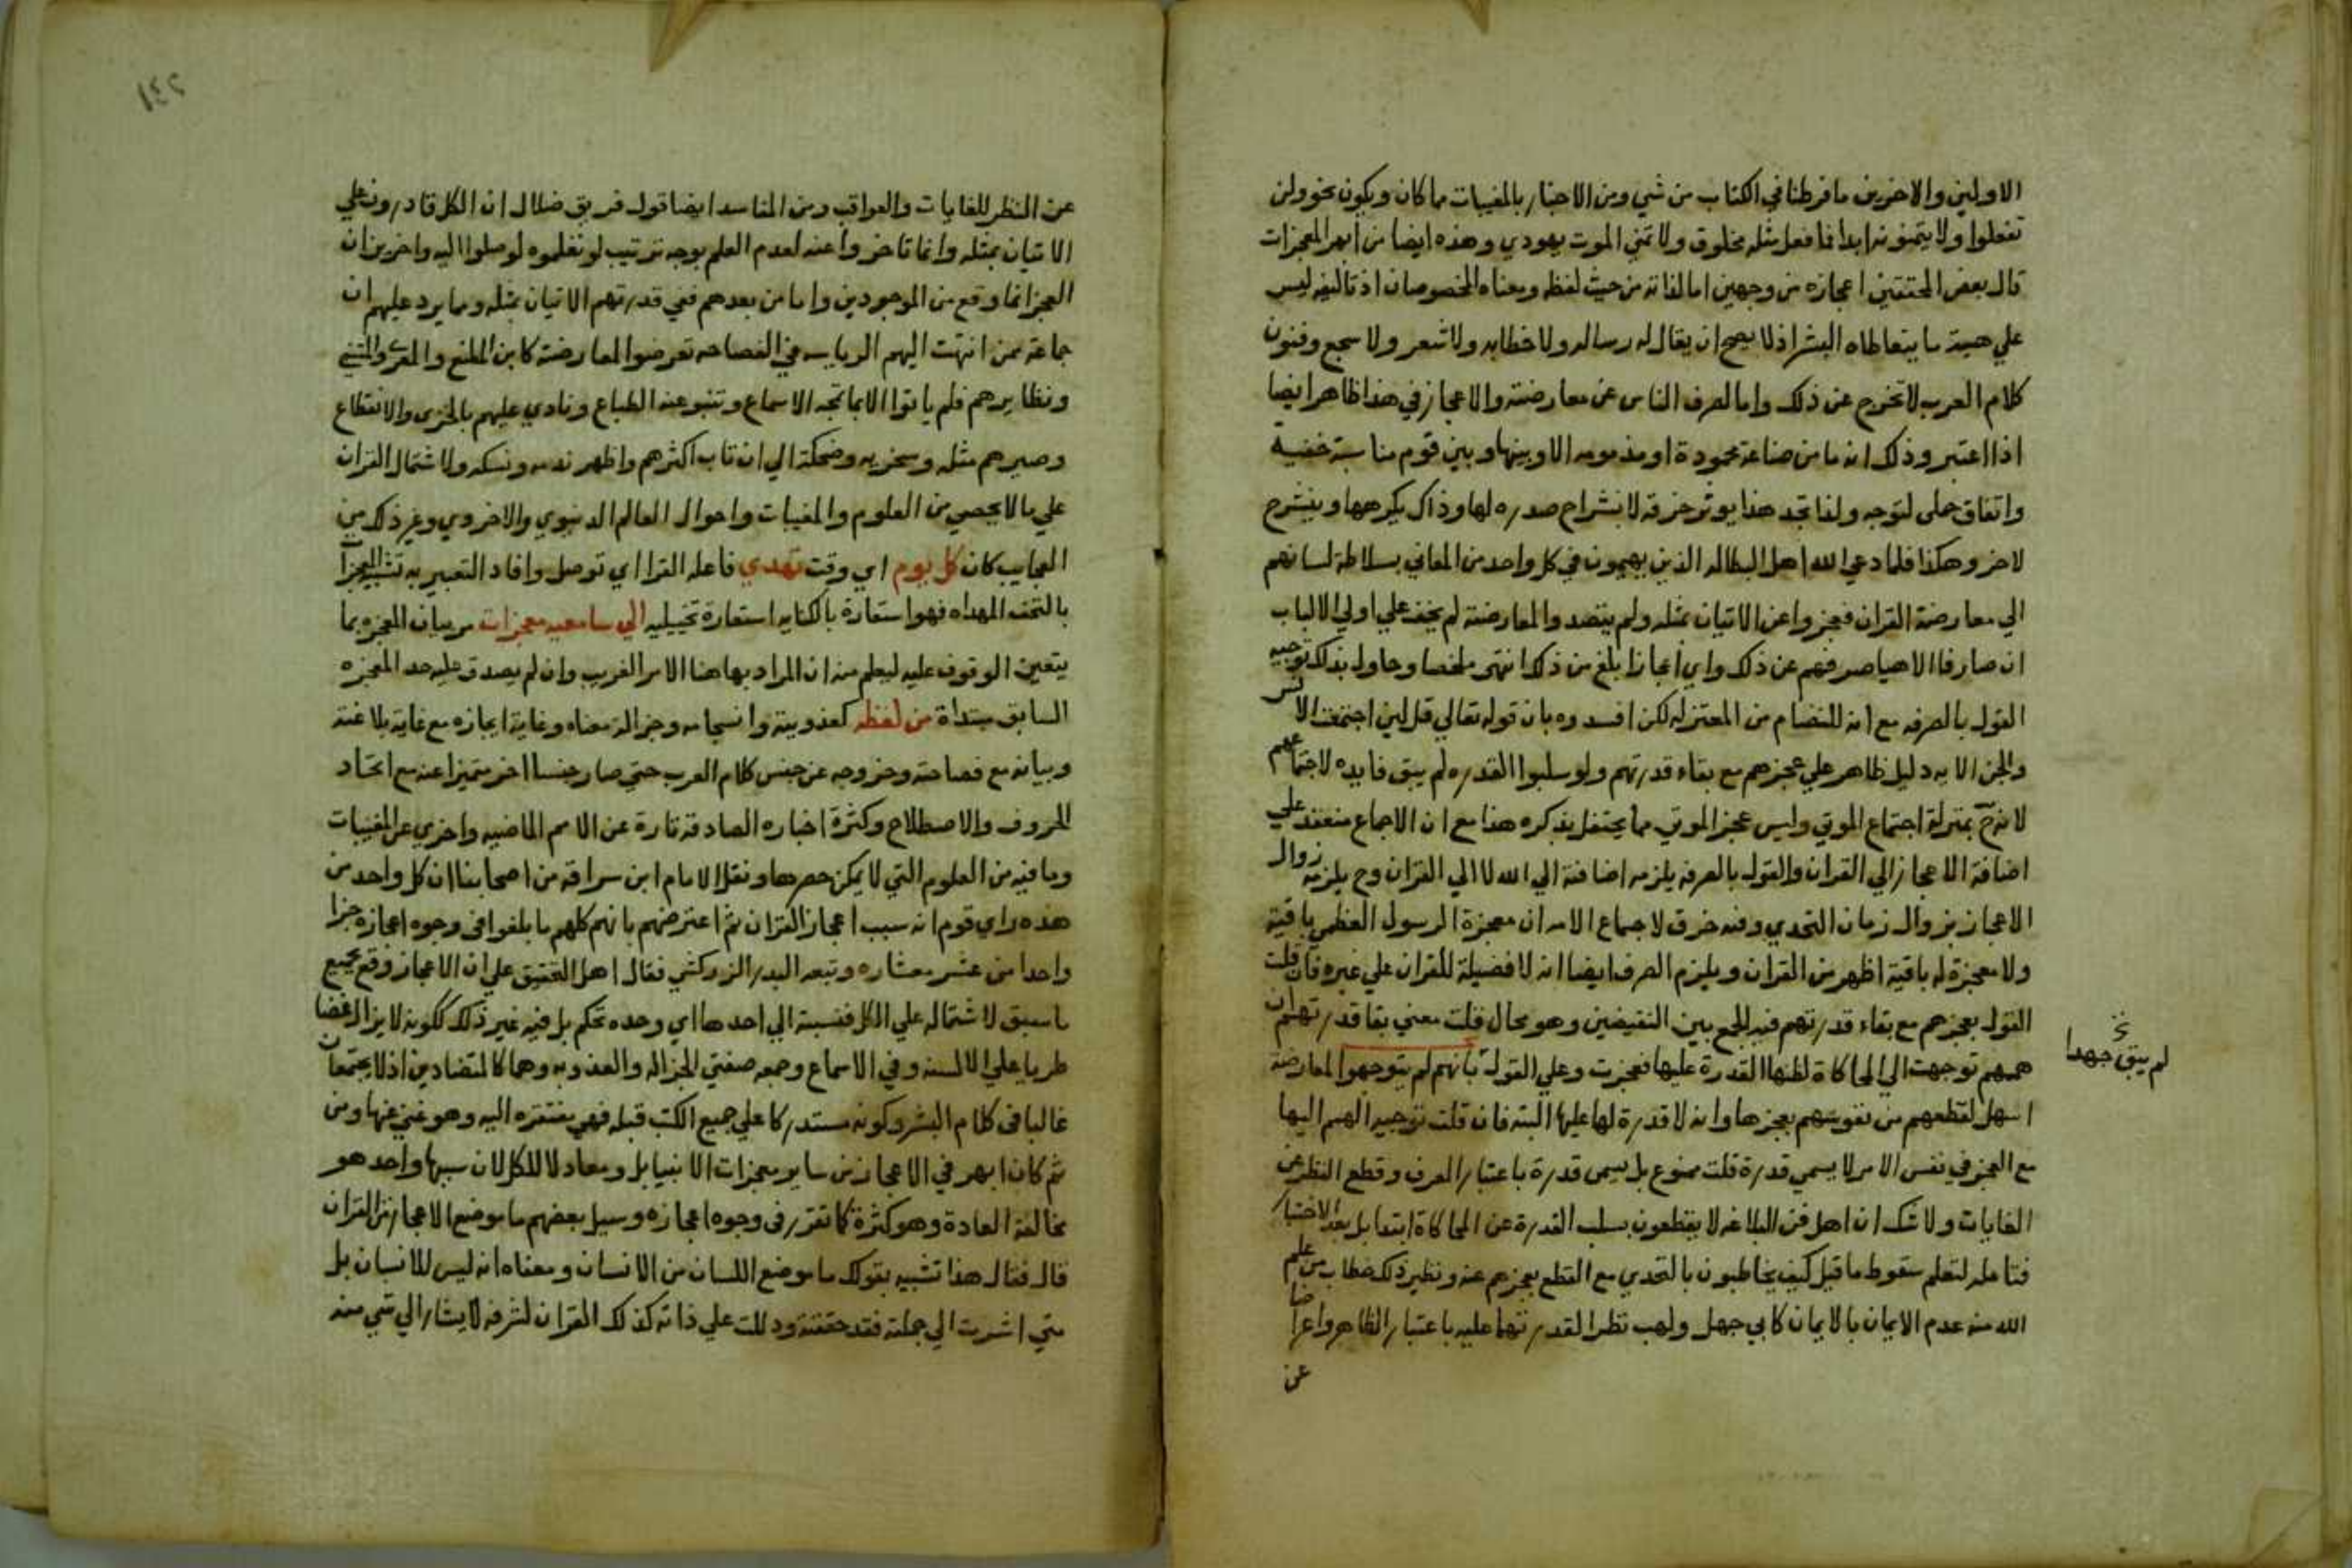 الاولين والاخرين ما فرطنا في الكتاب من شي ومن الاخبار بالمغيبات مما كان ويكون نحو ولن
تفعلوا ولا يتمنونه ابدا فما فعل مثله مخلوق ولا تمني الموت يهودي وهذه ايضا من ابهر المعجزات
قال بعض المحققين اعجازه من وجهين اما لذاته من حيث لفظه ومعناه المخصوصان اذ تاليفه ليس
علي هيئة ما يتعاطاه البشر اذ لا يصح ان يقال له رساله ولا خطابه ولا شعر ولا سجع وفنون
كلام العرب لا تخرج عن ذلك واما لصرف الناس عن معارضته والاعجاز في هذا ظاهر ايضا
اذا اعتبر وذلك انه ما من صناعة محمودة او مذمومه الا وبينها وبين قوم مناسبة خفية
واتفاق جلى لتوجه ولذا تجد هذا يوثر حرفة لانشراح صدره لها وذاك يكرهها وينشرح
لاخر وهكذا فلما دعي الله اهل البطاله الذين يهيمون في كل واحد من المعاني بسلاطة لسانهم
الي معارضة القران فعجزوا عن الاتيان بمثله ولم يتصدوا لمعارضته لم يخف علي اولي الالباب
ان صارفا الاهيا صرفهم عن ذلك واي اعجاز ابلغ من ذلك انتهى ملخصا وحاول بذلك توجيه
القول بالصرفه مع انه للنضام من المعتزله لكن افسدوه بان قوله تعالي قل لين اجتمعت الانس
والجن الايه دليل ظاهر علي عجزهم مع بقاء قدرتهم ولو سلبوا القدره لم يبق فايده لاجتماعهم
لانه ح بمنزلة اجتماع الموتي وليس عجز الموتي مما يحتفل بذكره هذا مع ان الاجماع منعقد علي
اضافة الاعجاز الي القران والقول بالصرفه يلزمه اضافته الي الله لا الي القران وح يلزمه زوال
الاعجاز بزوال زمان التحدي وفيه خرق لاجماع الامه ان معجزة الرسول العظمي باقية
ولا معجزة له باقية اظهر من القران ويلزم الصرف ايضا انه لا فضيلة للقران علي غيره فان قلت
القول بعجزهم مع بقاء قدرتهم فيه الجمع بين النقيضين وهو محال قلت معني بقا قدرتهم ان
هممهم توجهت الي المحاكاة لظنها القدرة عليها فعجزت وعلي القول بانهم لم يتوجهوا لمعارضة
لم يبق جهدا
اسهل لقطعهم من نفوسهم بعجزها وانه لا قدرة لها عليها البته فان قلت توجيه الهمم اليها
مع العجز في نفس الامر لا يسمي قدرة قلت ممنوع بل يسمى قدرة باعتبار العرف وقطع النظر عن
الغايات ولا شك ان اهل فن البلاغه لا يقطعون بسلب القدرة عن المحاكاة ابتدا بل بعد الاختبار
فتامله لتعلم سقوط ما قيل كيف يخاطبون بالتحدي مع القطع بعجزهم عنه ونظير ذلك خطاب من علم
الله منه عدم الايمان بالايمان كابي جهل ولهب نظرا لقدرتهما عليه باعتبار الظاهر واعراضا
عن
٢٤١
عن النظر للغايات والعواقب ومن المفاسد ايضا قول فريق ضلال ان الكل قادرون علي
الاتيان بمثله وانما تاخروا عنه لعدم العلم بوجه ترتيب لو تعلموه لوصلوا اليه واخرين ان
العجز انما وقع من الموجودين واما من بعدهم ففي قدرتهم الاتيان بمثله ومما يرد عليهم ان
جماعة ممن انتهت اليهم الرياسه في الفصاحه تعرضوا لمعارضته كابن المقفع والمعري والمتنبي
ونظايرهم فلم ياتوا الا بما تمجه الاسماع وتنبو عنه الطباع ونادي عليهم بالخزى والانقطاع
وصيرهم مثله وسخريه وضحكة الي ان تاب اكثرهم واظهر ندمه ونسكه ولاشتمال القران
علي ما لا يحصي من العلوم والمغيبات واحوال العالم الدنيوي والاخروي وغير ذلك من
العجايب كان كل يوم اي وقت تهدي فاعله القرا اي توصل وافاد التعبير به تشبيه المعجزات
بالتحف المهداه فهو استعارة بالكنايه استعارة تخييليه الي سامعيه معجزات مر بيان المعجزه بما
يتعين الوقوف عليه ليعلم منه ان المراد بها هنا الامر الغريب وان لم يصدق عليه حد المعجزه
السابق مبتداة من لفظه كعذوبته وانسجامه وجزالة معناه وغاية ايجازه مع غاية بلاغته
وبيانه مع فصاحته وخروجه عن جنس كلام العرب حتي صار جنسا اخر متميزا عنه مع اتحاد
الحروف والاصطلاح وكثرة اخباره الصادقه تارة عن الامم الماضيه واخري عن المغيبات
وما فيه من العلوم التي لا يمكن حصرها ونقل الامام ابن سراقة من اصحابنا ان كل واحد من
هذه راي قوم انه سبب اعجاز القران ثم اعترضهم بانهم كلهم ما بلغوا في وجوه اعجازه جزا
واحدا من عشر معشاره وتبعه البدر الزركشي فقال اهل التحقيق علي ان الاعجاز وقع بجميع
ما سبق لاشتماله علي الكل فنسبته الي احدها اي وحده تحكم بل فيه غير ذلك ككونه لا يزال غضا
طريا علي الالسنه وفي الاسماع وجمعه صفتي الجزاله والعذوبه وهما كالمتضادين اذ لا يجتمعان
غالبا فى كلام البشر وكونه مستدركا علي جميع الكتب قبله فهي مفتقره اليه وهو غني عنها ومن
ثم كان ابهر في الاعجاز من ساير معجزات الانبيا بل ومعادلا للكل لان سببها واحد هو
مخالفة العادة وهو كثرة كما تقرر فى وجوه اعجازه وسيل بعضهم ما موضع الاعجاز من القران
قال فقال هذا تشبيه بقولك ما موضع اللسان من الانسان ومعناه انه ليس للانسان بل
متي اشرت الي جملته فقد حققته ودللت علي ذاته كذلك القران لشرفه لا يشار الي شي منه